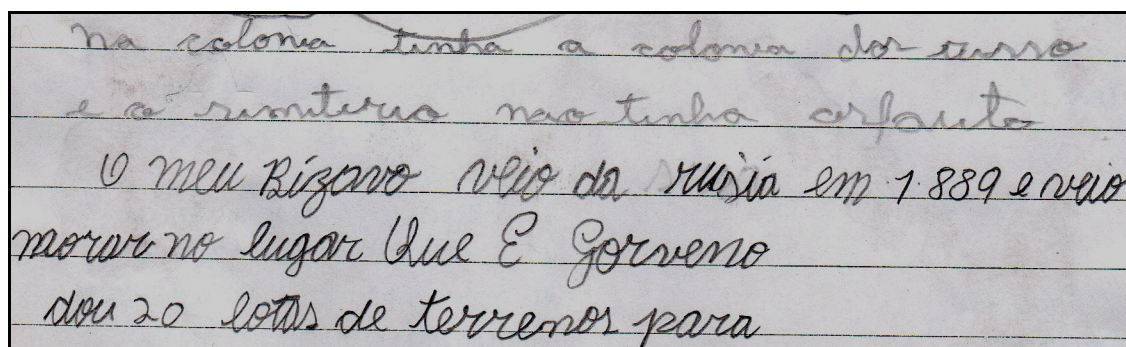 na colonia tinha a colonia dos russo
e o simiterio nao tinha
O meu Bizavo veio da rusia em 1.889 e veio
morar no lugar Que E Gorveno
dou 20 lotas de terrenos para